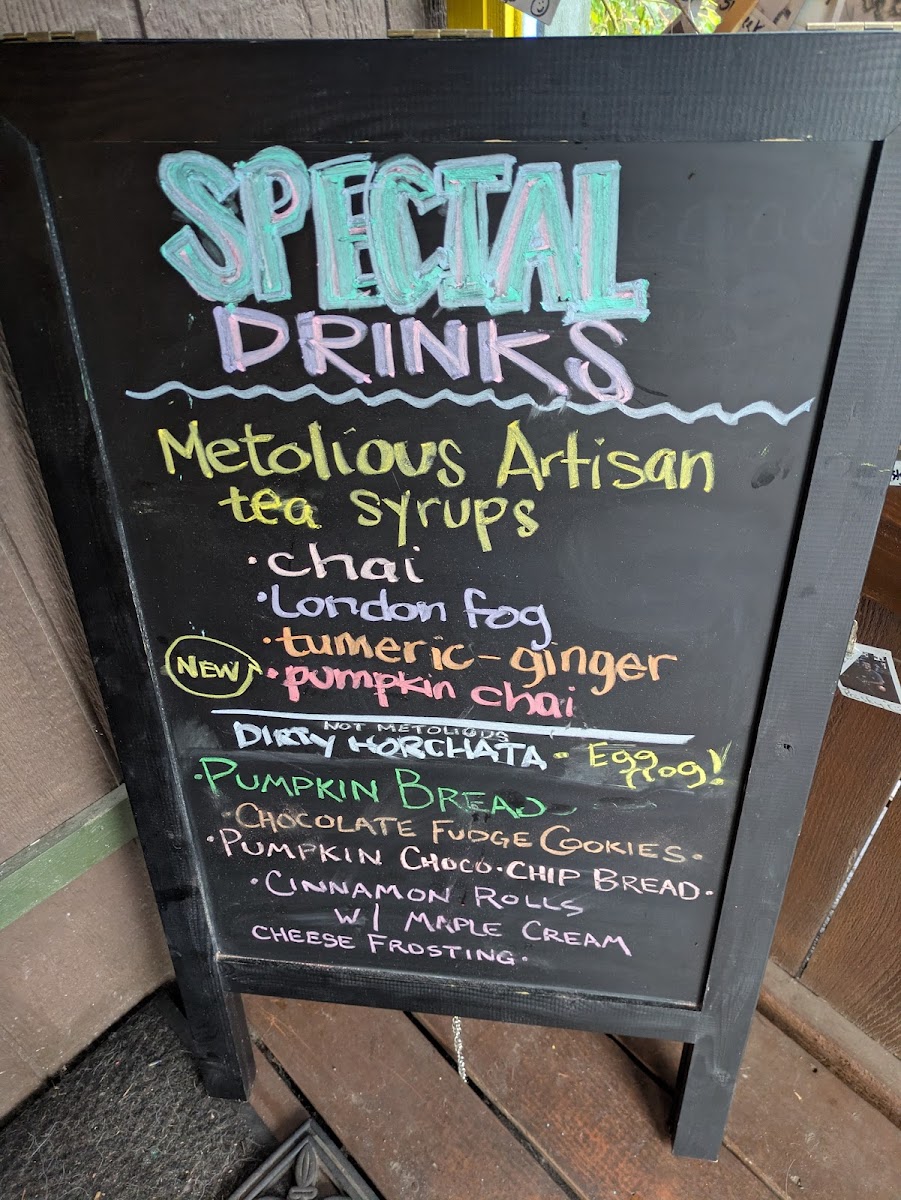 SPECIAL
DRINKS
Metolious Artisan
tea syrups
·chai
·London fog
·tumeric-ginger
NEW ·pumpkin chai
NOT METOLIOUS
DIRTY HORCHATA · Egg
nog!
·PUMPKIN BREAD
·CHOCOLATE FUDGE COOKIES·
·PUMPKIN CHOCO·CHIP BREAD·
·CINNAMON ROLLS
W/ MAPLE CREAM
CHEESE FROSTING·